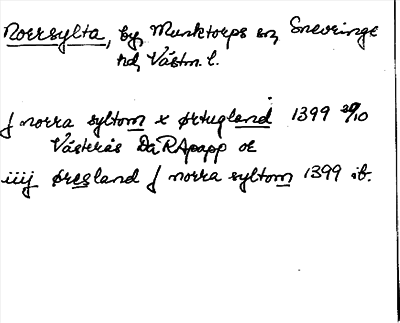 Norrsylta, by, Munktorps sn, Snevringe
hd, Västm. l.
j norra syltom x ørtugland 1399 20/10
Västerås DaRApapp or
iiij øresland j norra syltom 1399 ib.